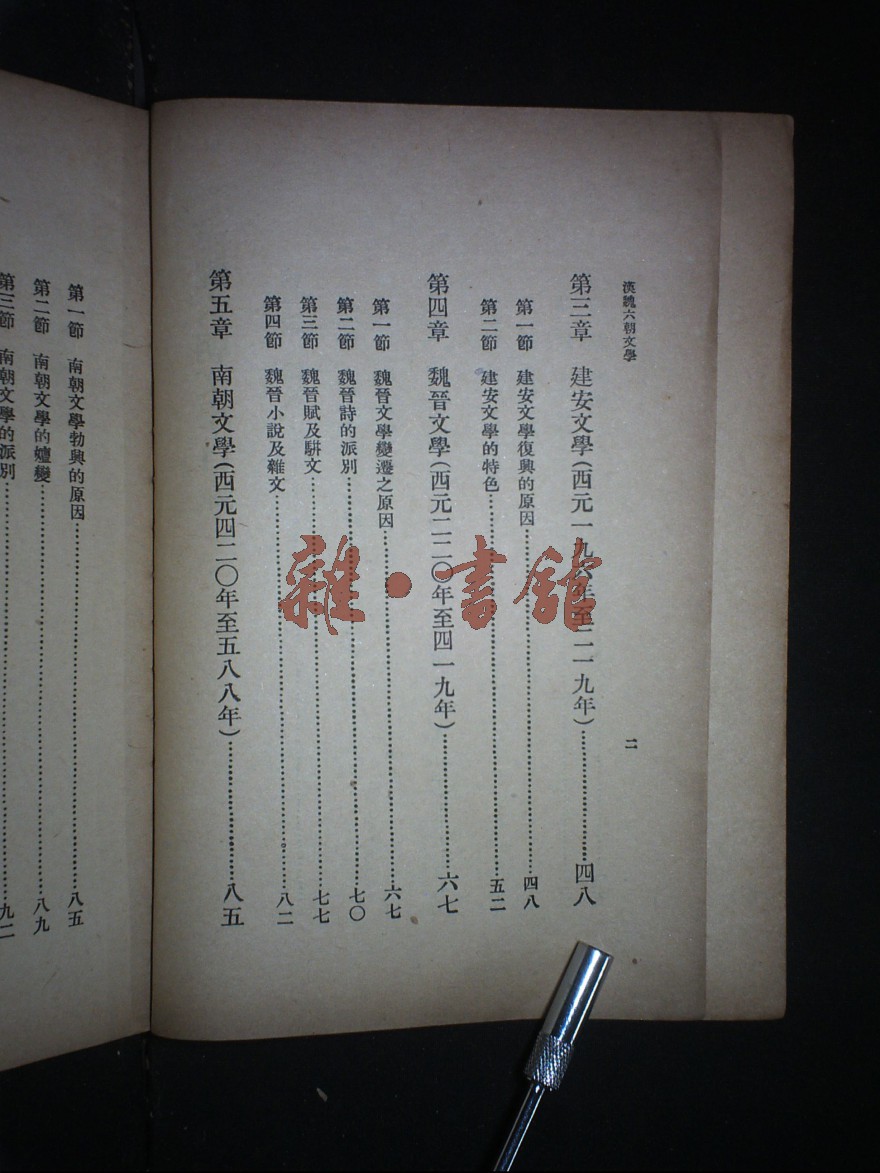 漢魏六朝文學
二
第三章 建安文學(西元一九六年至二一九年)……………四八
第一節 建安文學復興的原因……………四八
第二節 建安文學的特色……………五二
第四章 魏晉文學(西元二二〇年至四一九年)……………六七
第一節 魏晉文學變遷之原因……………六七
第二節 魏晉詩的派別……………七〇
第三節 魏晉賦及駢文……………七七
第四節 魏晉小說及雜文……………八二
第五章 南朝文學(西元四二〇年至五八八年)……………八五
第一節 南朝文學勃興的原因……………八五
第二節 南朝文學的嬗變……………八九
第三節 南朝文學的派別……………九二
雜·書館